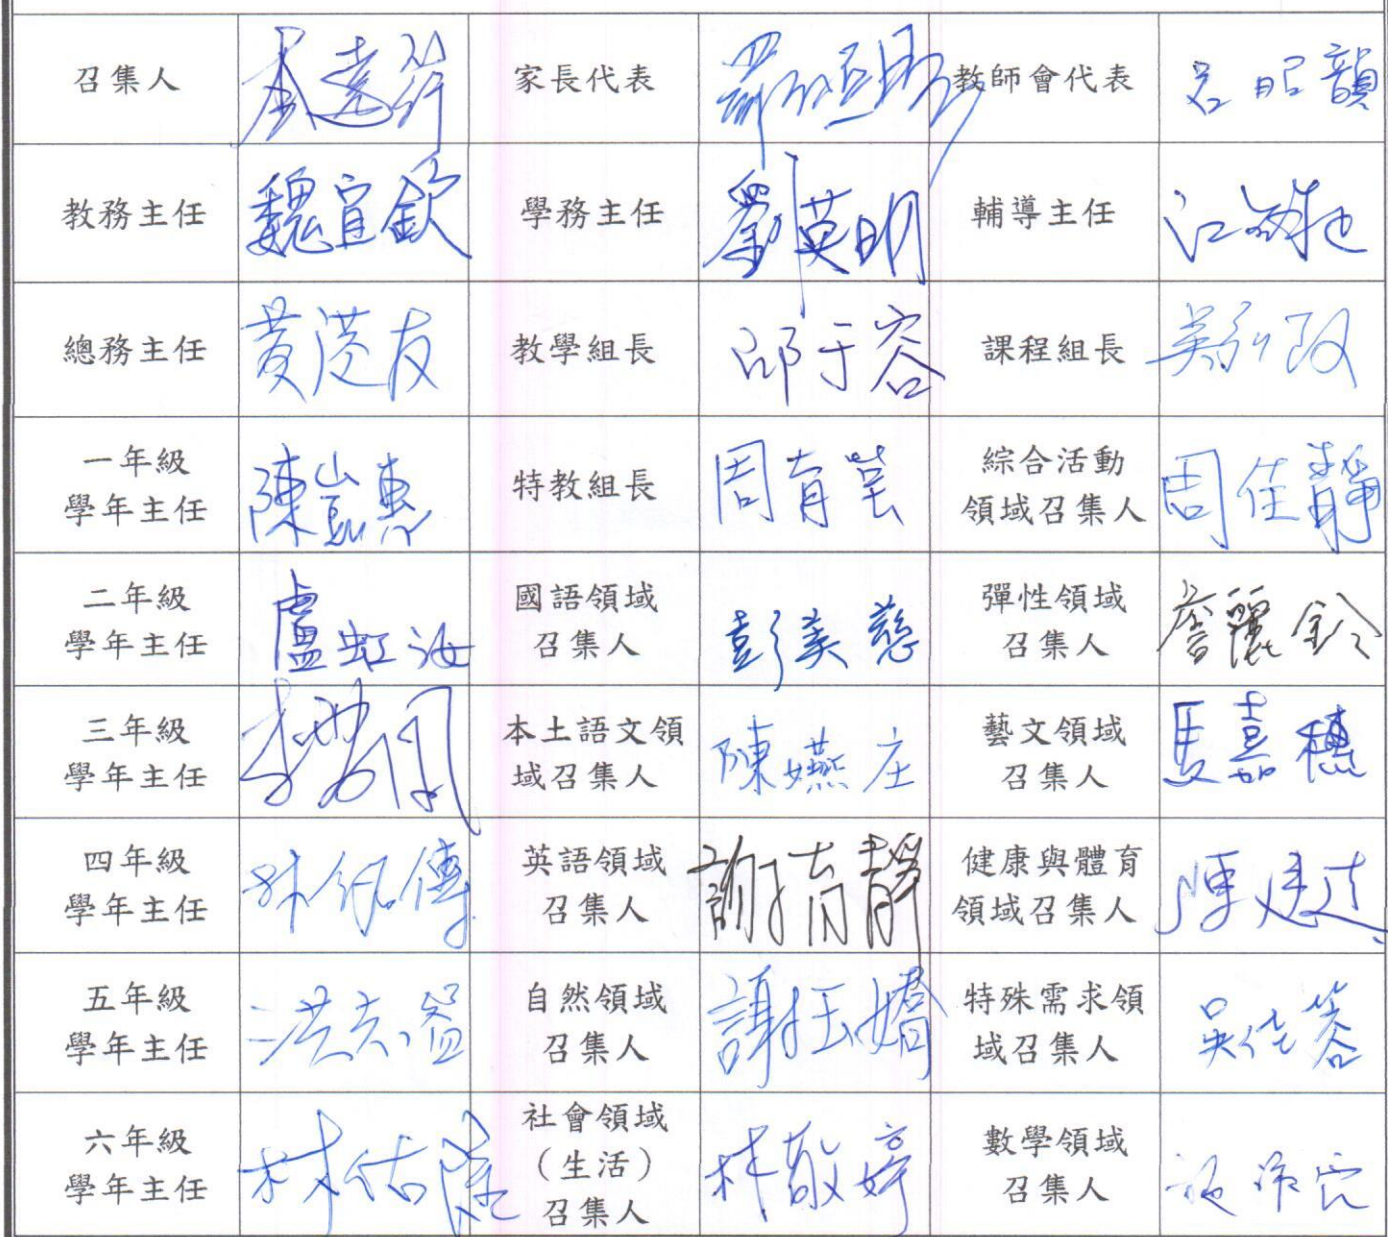 召集人
家長代表
教師會代表
教務主任
魏宜欽
學務主任
劉英明
輔導主任
總務主任
教學組長
邱于容
課程組長
一年級
學年主任
特教組長
周育瑩
綜合活動
領域召集人
周佳靜
二年級
學年主任
盧虹汝
國語領域
召集人
彭美慈
彈性領域
召集人
詹麗鈴
三年級
學年主任
本土語文領
域召集人
陳嬿庄
藝文領域
召集人
馬嘉穗
四年級
學年主任
英語領域
召集人
謝育靜
健康與體育
領域召集人
五年級
學年主任
自然領域
召集人
謝玨嬌
特殊需求領
域召集人
六年級
學年主任
林佑隆
社會領域
（生活）
召集人
林敬婷
數學領域
召集人